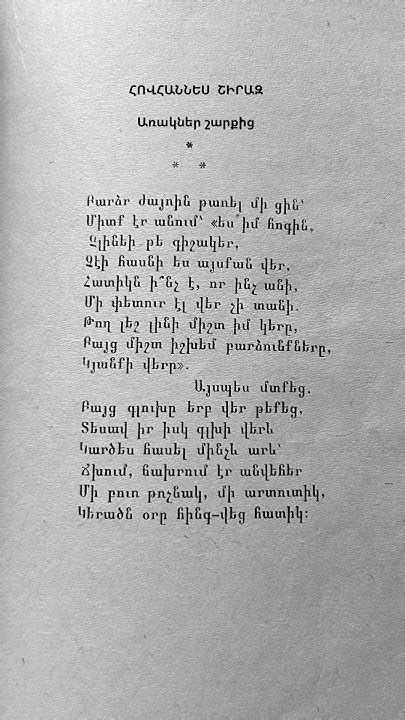 ՀՈՎՀԱՆՆԵՍ ՇԻՐԱԶ
Առակներ շարքից
*
* *
Բարձր ժայռին թառել մի ցին՝
Միտք էր անում՝ «ես՝ իմ հոգին,
Չլինեի թե գիշակեր,
Չէի հասնի ես այսքան վեր,
Հատիկն ի՞նչ է, որ ինչ անի,
Մի փետուր էլ վեր չի տանի.
Թող լեշ լինի միշտ իմ կերը,
Բայց միշտ իշխեմ բարձունքները,
Կյանքի վերը».
Այսպես մտքեց.
Բայց գլուխը երբ վեր թեքեց,
Տեսավ իր իսկ գլխի վերև
Կարծես հասել մինչև արև՝
Ճխում, ճախրում էր անվեհեր
Մի բուռ թռչնակ, մի արտուտիկ,
Կերածն օրը հինգ-վեց հատիկ: